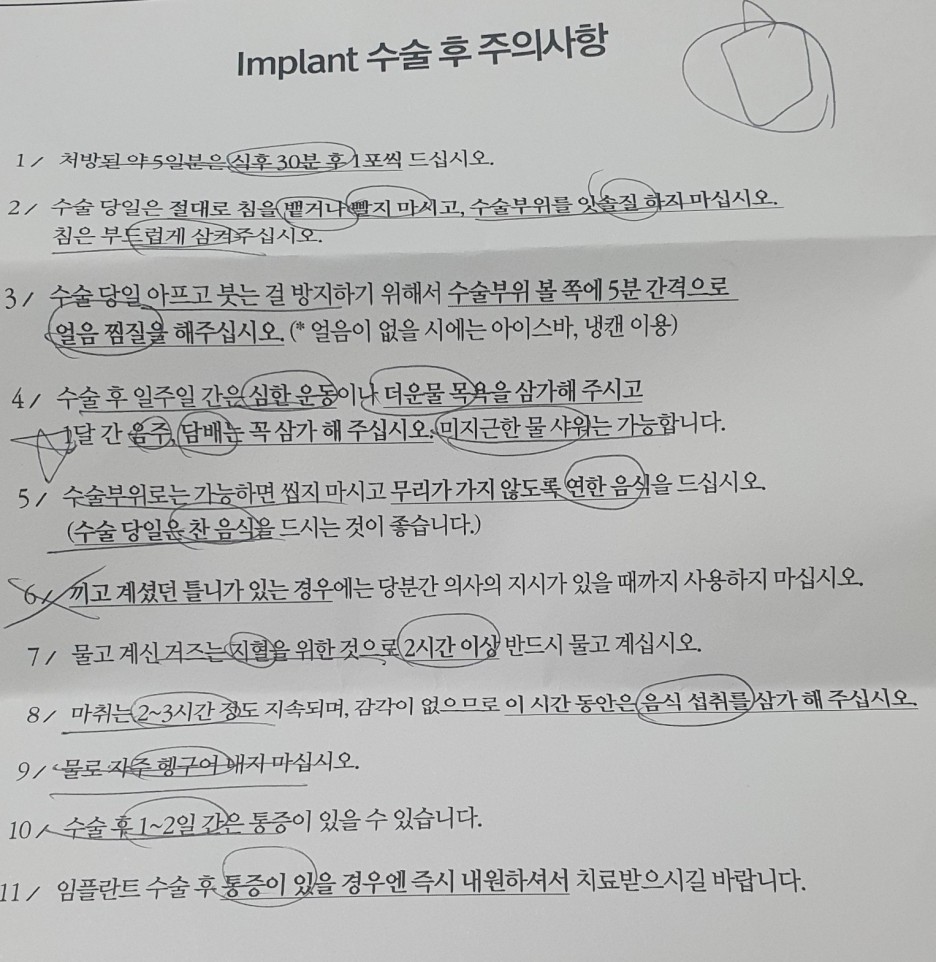 Implant 수술 후 주의사항
1/ 처방된 약 5일분은 식후 30분 후 1포씩 드십시오.
2/ 수술 당일은 절대로 침을 뱉거나 빨지 마시고, 수술부위를 잇솔질 하지 마십시오.
침은 부드럽게 삼켜주십시오.
3/ 수술 당일 아프고 붓는 걸 방지하기 위해서 수술부위 볼 쪽에 5분 간격으로
얼음 찜질을 해주십시오. (* 얼음이 없을 시에는 아이스바, 냉캔 이용)
4/ 수술 후 일주일 간은 심한 운동이나 더운물 목욕을 삼가해 주시고
1달 간 음주, 담배는 꼭 삼가 해 주십시오. 미지근한 물 샤워는 가능합니다.
5/ 수술부위로는 가능하면 씹지 마시고 무리가 가지 않도록 연한 음식을 드십시오.
(수술 당일은 찬 음식을 드시는 것이 좋습니다.)
6/ 끼고 계셨던 틀니가 있는 경우에는 당분간 의사의 지시가 있을 때까지 사용하지 마십시오.
7/ 물고 계신 거즈는 지혈을 위한 것으로 2시간 이상 반드시 물고 계십시오.
8/ 마취는 2~3시간 정도 지속되며, 감각이 없으므로 이 시간 동안은 음식 섭취를 삼가 해 주십시오.
9/ 물로 자주 헹구어 내지 마십시오.
10/ 수술 후 1~2일 간은 통증이 있을 수 있습니다.
11/ 임플란트 수술 후 통증이 있을 경우엔 즉시 내원하셔서 치료받으시길 바랍니다.